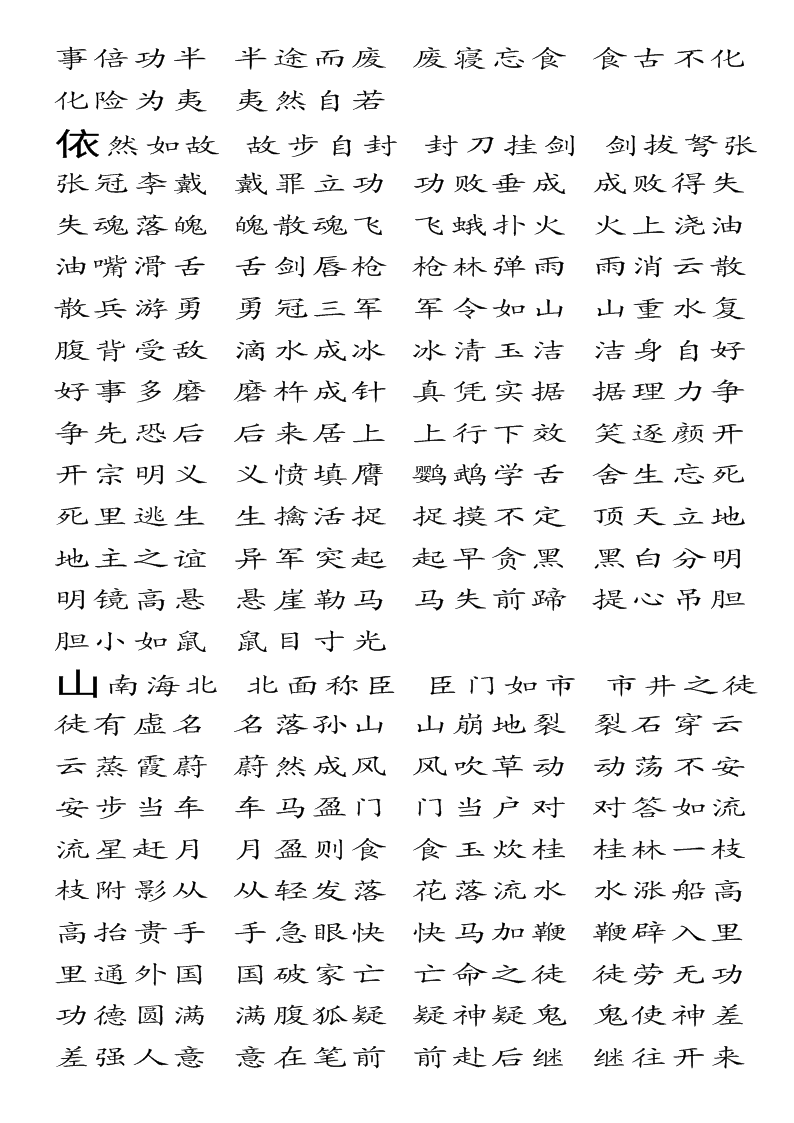 事倍功半 半途而废 废寝忘食 食古不化
化险为夷 夷然自若
依然如故 故步自封 封刀挂剑 剑拔弩张
张冠李戴 戴罪立功 功败垂成 成败得失
失魂落魄 魄散魂飞 飞蛾扑火 火上浇油
油嘴滑舌 舌剑唇枪 枪林弹雨 雨消云散
散兵游勇 勇冠三军 军令如山 山重水复
腹背受敌 滴水成冰 冰清玉洁 洁身自好
好事多磨 磨杵成针 真凭实据 据理力争
争先恐后 后来居上 上行下效 笑逐颜开
开宗明义 义愤填膺 鹦鹉学舌 舍生忘死
死里逃生 生擒活捉 捉摸不定 顶天立地
地主之谊 异军突起 起早贪黑 黑白分明
明镜高悬 悬崖勒马 马失前蹄 提心吊胆
胆小如鼠 鼠目寸光
山南海北 北面称臣 臣门如市 市井之徒
徒有虚名 名落孙山 山崩地裂 裂石穿云
云蒸霞蔚 蔚然成风 风吹草动 动荡不安
安步当车 车马盈门 门当户对 对答如流
流星赶月 月盈则食 食玉炊桂 桂林一枝
枝附影从 从轻发落 花落流水 水涨船高
高抬贵手 手急眼快 快马加鞭 鞭辟入里
里通外国 国破家亡 亡命之徒 徒劳无功
功德圆满 满腹狐疑 疑神疑鬼 鬼使神差
差强人意 意在笔前 前赴后继 继往开来